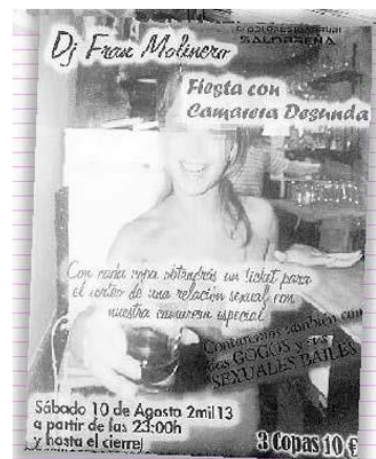 Dj Fran Molinero
SALOBREÑA
Fiesta con
Camarera Desnuda
Con cada copa obtendrás un ticket para
el sorteo de una relación sexual con
nuestra camarera especial
Contaremos también con
dos GOGOS y sus
SEXUALES BAILES
Sábado 10 de Agosto 2mil13
a partir de las 23:00h
y hasta el cierre!
3 Copas 10 €